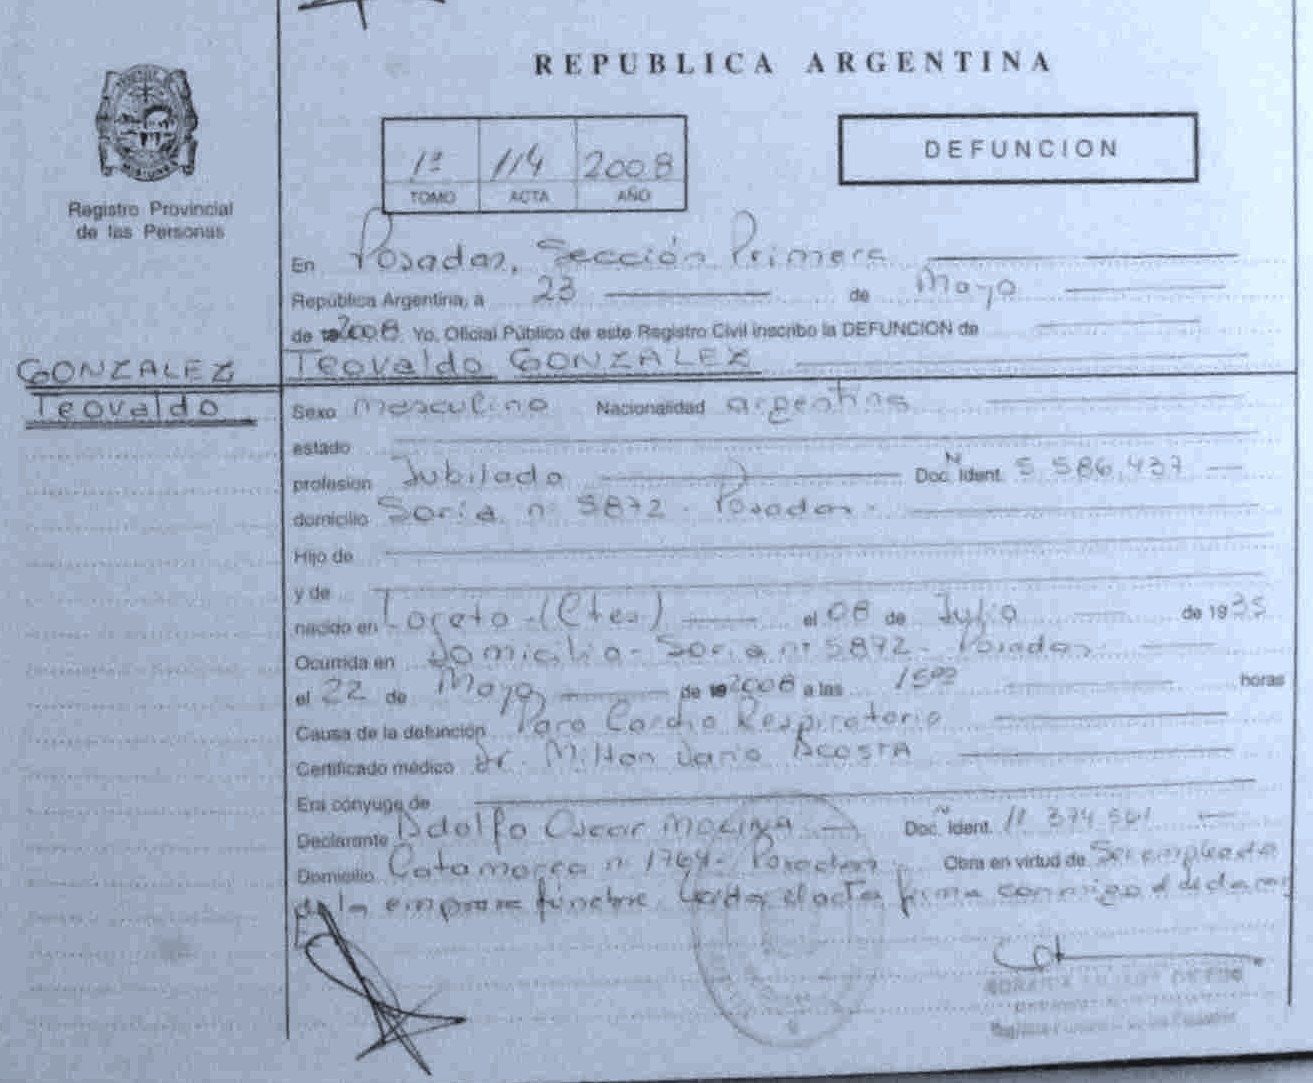 REPUBLICA ARGENTINA
1º 114 2008
TOMO ACTA AÑO
DEFUNCION
Registro Provincial
de las Personas
En Posadas, Sección Primera
República Argentina, a 23 de Mayo
de 2008 Yo, Oficial Público de este Registro Civil inscribo la DEFUNCION de
GONZALEZ
Teovaldo
Teovaldo GONZALEZ
Sexo masculino Nacionalidad argentina
estado
profesion Jubilado Doc. Ident. Nº 5.586.437
domicilio Soria nº 5872 - Posadas -
Hijo de
y de
nacido en Loreto - (Ctes) el 08 de Julio de 1935
Ocurrida en domicilio - Soria nº 5872 - Posadas
el 22 de Mayo de 2008 a las 15⁰⁰ horas
Causa de la defunción Paro Cardio Respiratorio
Certificado médico Dr. Milton Dario ACOSTA
Era cónyuge de
Declarante Adolfo Oscar MOLINA Doc. Ident. Nº 11.374.561
Domicilio Catamarca nº 1764 - Posadas - Obra en virtud de Ser empleado
de la empresa fúnebre. Leída el acta firma conmigo el declaran